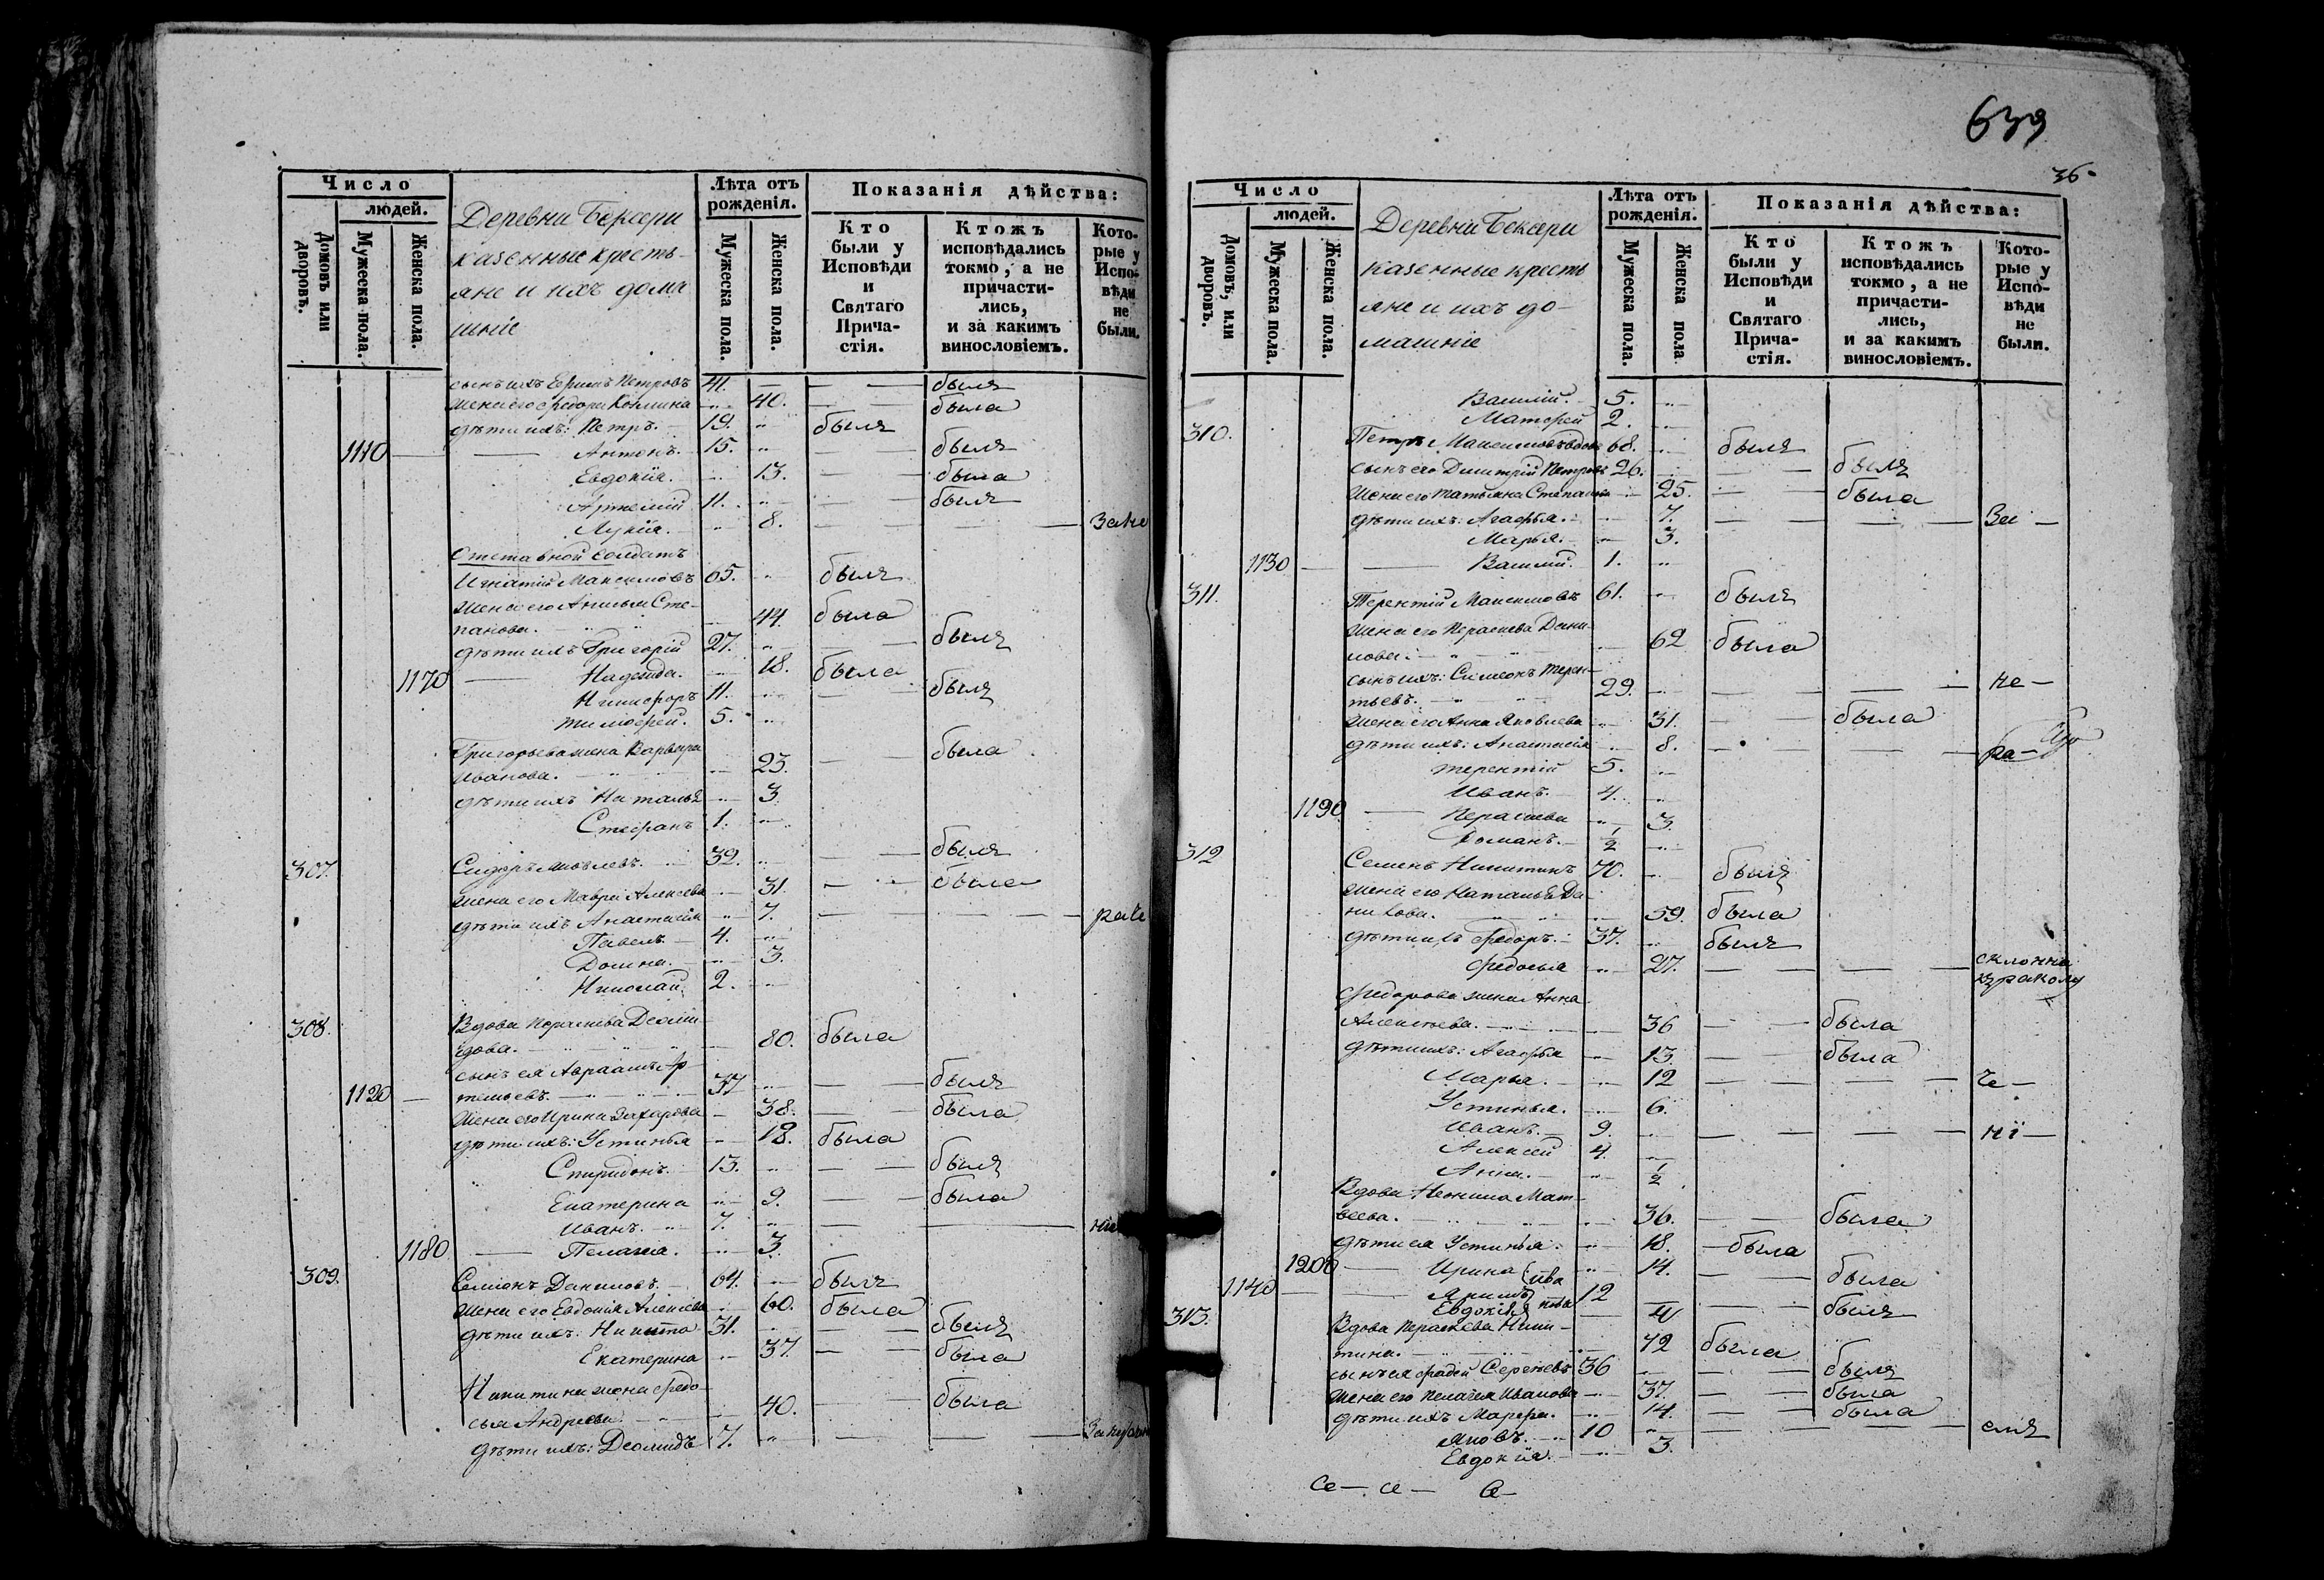 Число
людей.
Домовъ или дворовъ.
Мужеска пола.
Женска пола.
Деревни Бексери
казенные кресть-
яне и ихъ дома
шніе
Лѣта отъ рожденія.
Мужеска пола.
Женска пола.
Показанія дѣйства:
Кто были у Исповѣди и Святаго Прича-стія.
Ктожъ исповѣдались токмо, а не причасти-лись, и за какимъ винословіемъ.
Кото-рые у Испо-вѣди не были.
сынъ ихъ Ефимъ Петровъ 41. — — — былъ
жена его 40. — — была
дѣти ихъ: Петръ. 19. былъ
1110 — Антонъ. 15. былъ
Евдокія. 13. — была
Артемій 11. — былъ
Лукія. 8. — —
Отставной Солдатъ
Игнатій Максимовъ 65. былъ
жена его Анисья Сте-
панова. 44. была
дѣти ихъ Григорій 27. — былъ
1170 — Надежда. 18. была
Никифоръ 11. — былъ
Тимофей. 5.
Григорьева жена Варвара
Иванова. 23. — была
дѣти ихъ Наталья 3.
Стефанъ 1.
307. Сидоръ 39. — — былъ
жена его Мавра Алексеева 31. — была
дѣти ихъ Анастасія 7. — —
Павелъ. 4.
Домна. 3.
Николай. 2.
308. Вдова Параскева Деоми-
дова. 80. была
сынъ ея Авраамъ Ар-
1120 — темьевъ. 37 — — былъ
жена его Ирина Захарова 38. — была
дѣти ихъ: Устинья 18. была
Спиридонъ. 13. — — былъ
Екатерина 9. — — была
Иванъ. 7. — —
1180 — Пелагея. 3.
309. Семіонъ Даниловъ. 64. былъ
жена его Евдокія Алексеева 60. была
дѣти ихъ: Никита 31. — былъ
Екатерина 37. — — была
Никитина жена Федо-
сья Андреева. 40. — была
дѣти ихъ: Деомидъ 7. — —
639
36
Число
людей.
Домовъ, или дворовъ.
Мужеска пола.
Женска пола.
Деревни Бексери
казенные кресть
яне и ихъ до-
машніе
Лѣта отъ рожденія.
Мужеска пола.
Женска пола
Показанія дѣйства:
Кто были у Исповѣди и Святаго Прича-стія.
Ктожъ исповѣдались токмо, а не причасти-лись, и за какимъ винословіемъ.
Кото-рые у Испо-вѣди не были.
Василій. 5.
Матфей 2.
310. Петръ Максимовъ вдовъ 68. былъ
сынъ его Димитрій Петровъ 26. — — былъ
жена его Татьяна Степанова 25. — — была
дѣти ихъ: Агафья. 7. — —
Марья. 3.
1130 — Василій. 1.
311. Терентій Максимовъ 61. былъ
жена его Параскева Дани-
лова. 62 была
сынъ ихъ: Симеонъ Терен-
тьевъ. 29. — — не —
жена его Анна Яковлева 31. — была
дѣти ихъ: Анастасія 8. — — ра —
Терентій 5.
Иванъ. 4.
1190 — Параскева 3.
Романъ. ½
312 Семенъ Никитинъ 70. былъ
жена его Наталья Да-
нилова. 59. была
дѣти ихъ Федоръ. 37. былъ
Федосья 27. — — склонна къ расколу
Федорова жена Анна
Алексѣева. 36 — — была
дѣти ихъ: Агафья 13 — была
Марья. 12 — —
Устинья. 6.
Иванъ. 9. — — ні —
Алексей 4.
Анна. ½
Вдова Неонила Мат-
веева. 36. — — была
дѣти ея Устинья. 18. — была
1200 — Ирина 14. — — была
1140 — Якимъ 12 — былъ
Евдокія 4
313. Вдова Параскева Ники-
тина. 72 была
сынъ ея Фадей Сергеевъ 36 — — былъ
жена его Пелагея Иванова 37. — — была
дѣти ихъ Марфа. 14. — — была
Яковъ. 10 — —
Евдокія. 3.